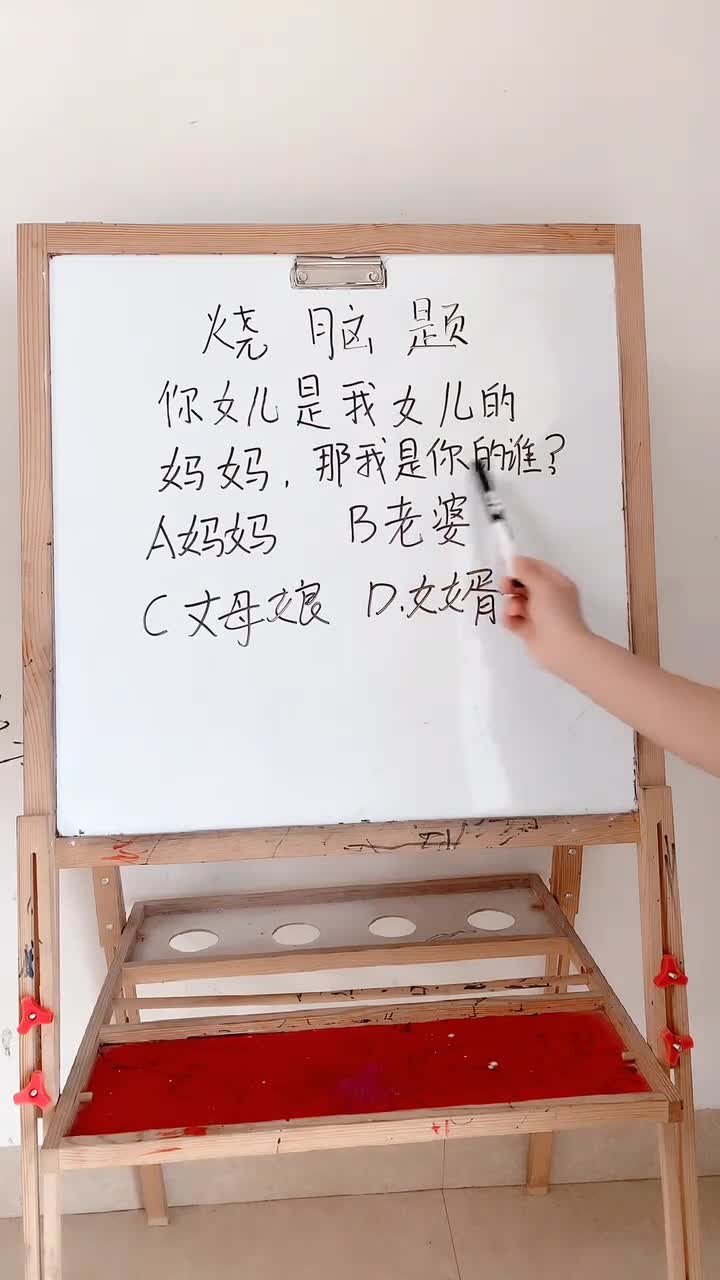 烧脑题
你女儿是我女儿的
妈妈，那我是你的谁？
A妈妈 B老婆
C丈母娘 D.女婿